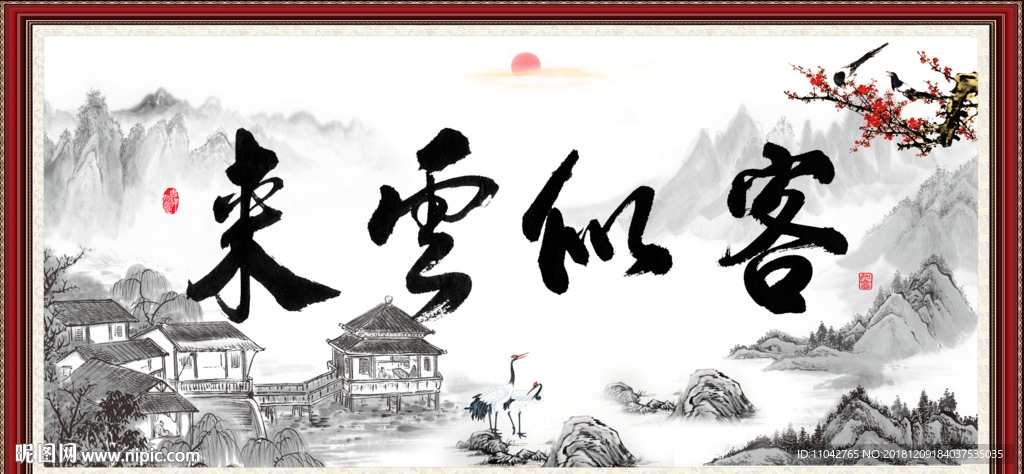 来雲似客
昵图网 www.nipic.com
ID:11042765 NO:20181209184037535035